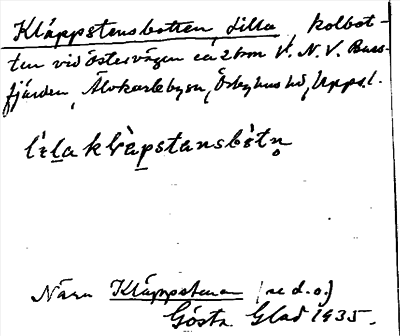 Kläppstensbotten, Lilla, kolbot-
ten vid Östervägen ca 2 km V. N. V. Buss-
fjärden, Älvkarleby sn, Örbyhus hd, Uppsl.
lìla klæ̀pstansbòtn̥
Nära Kläppstenen (se d. o.)
Gösta Glad 1935.